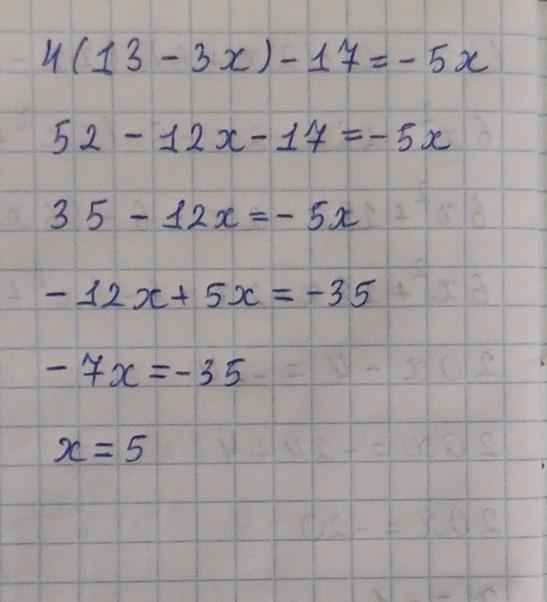 4(13 - 3x) - 17 = - 5x
52 - 12x - 17 = - 5x
35 - 12x = - 5x
- 12x + 5x = - 35
- 7x = - 35
x = 5